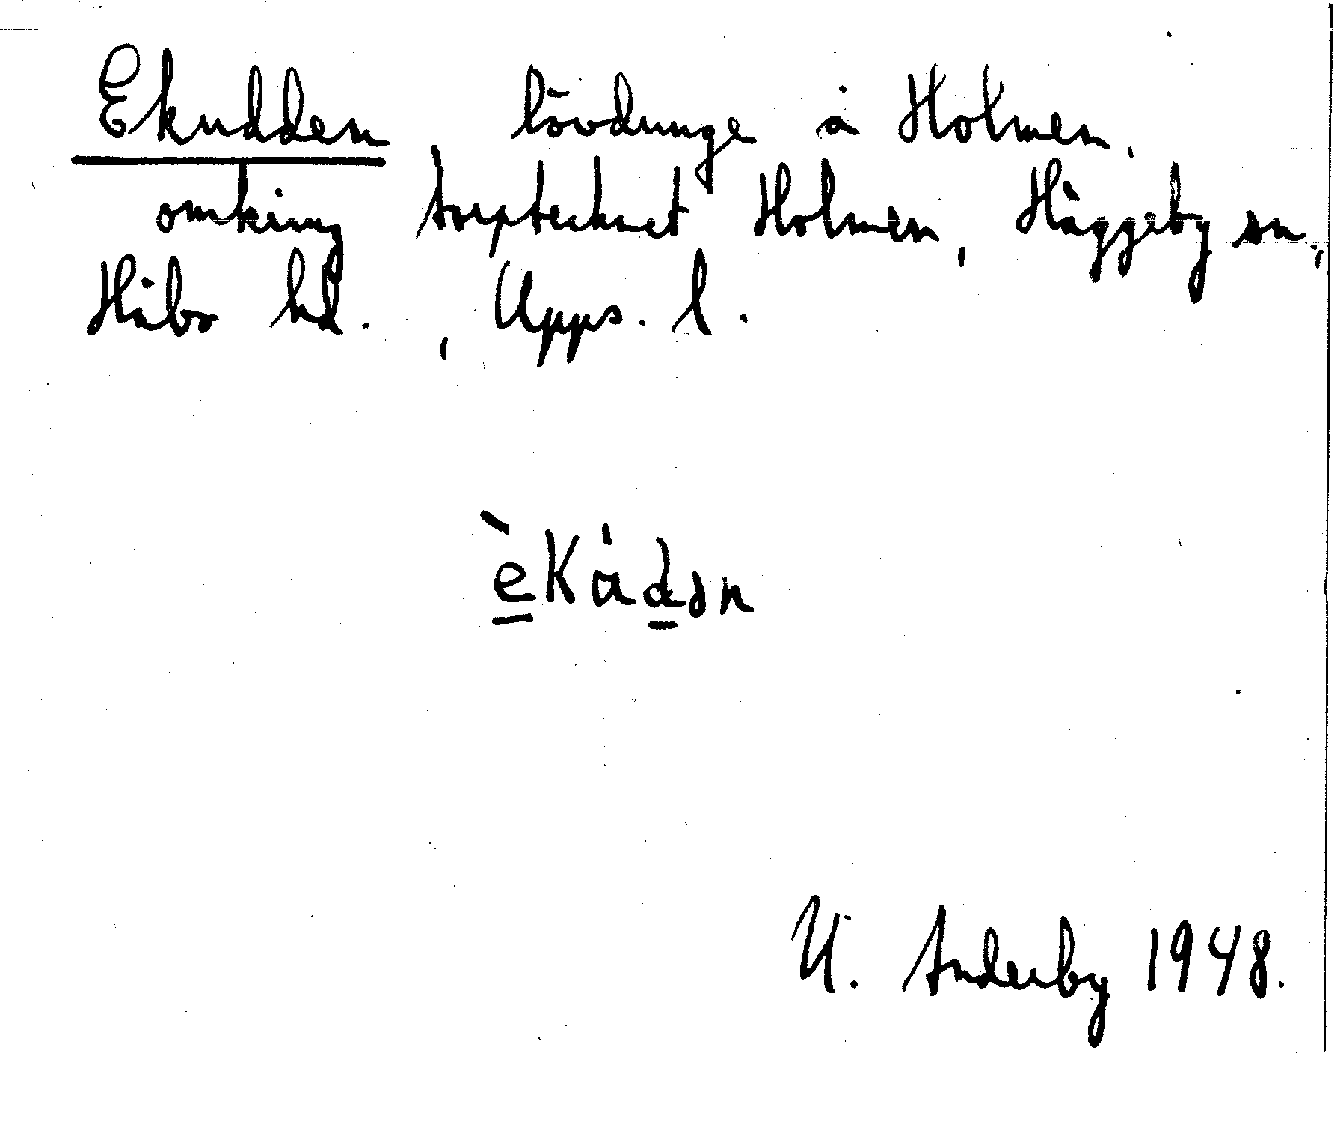 Ekudden, lövdunge å Holmen,
omkring torptecknet Holmen, Häggeby sn,
Håbo hd., Upps. l.
èKådən
N. Anderby 1948.